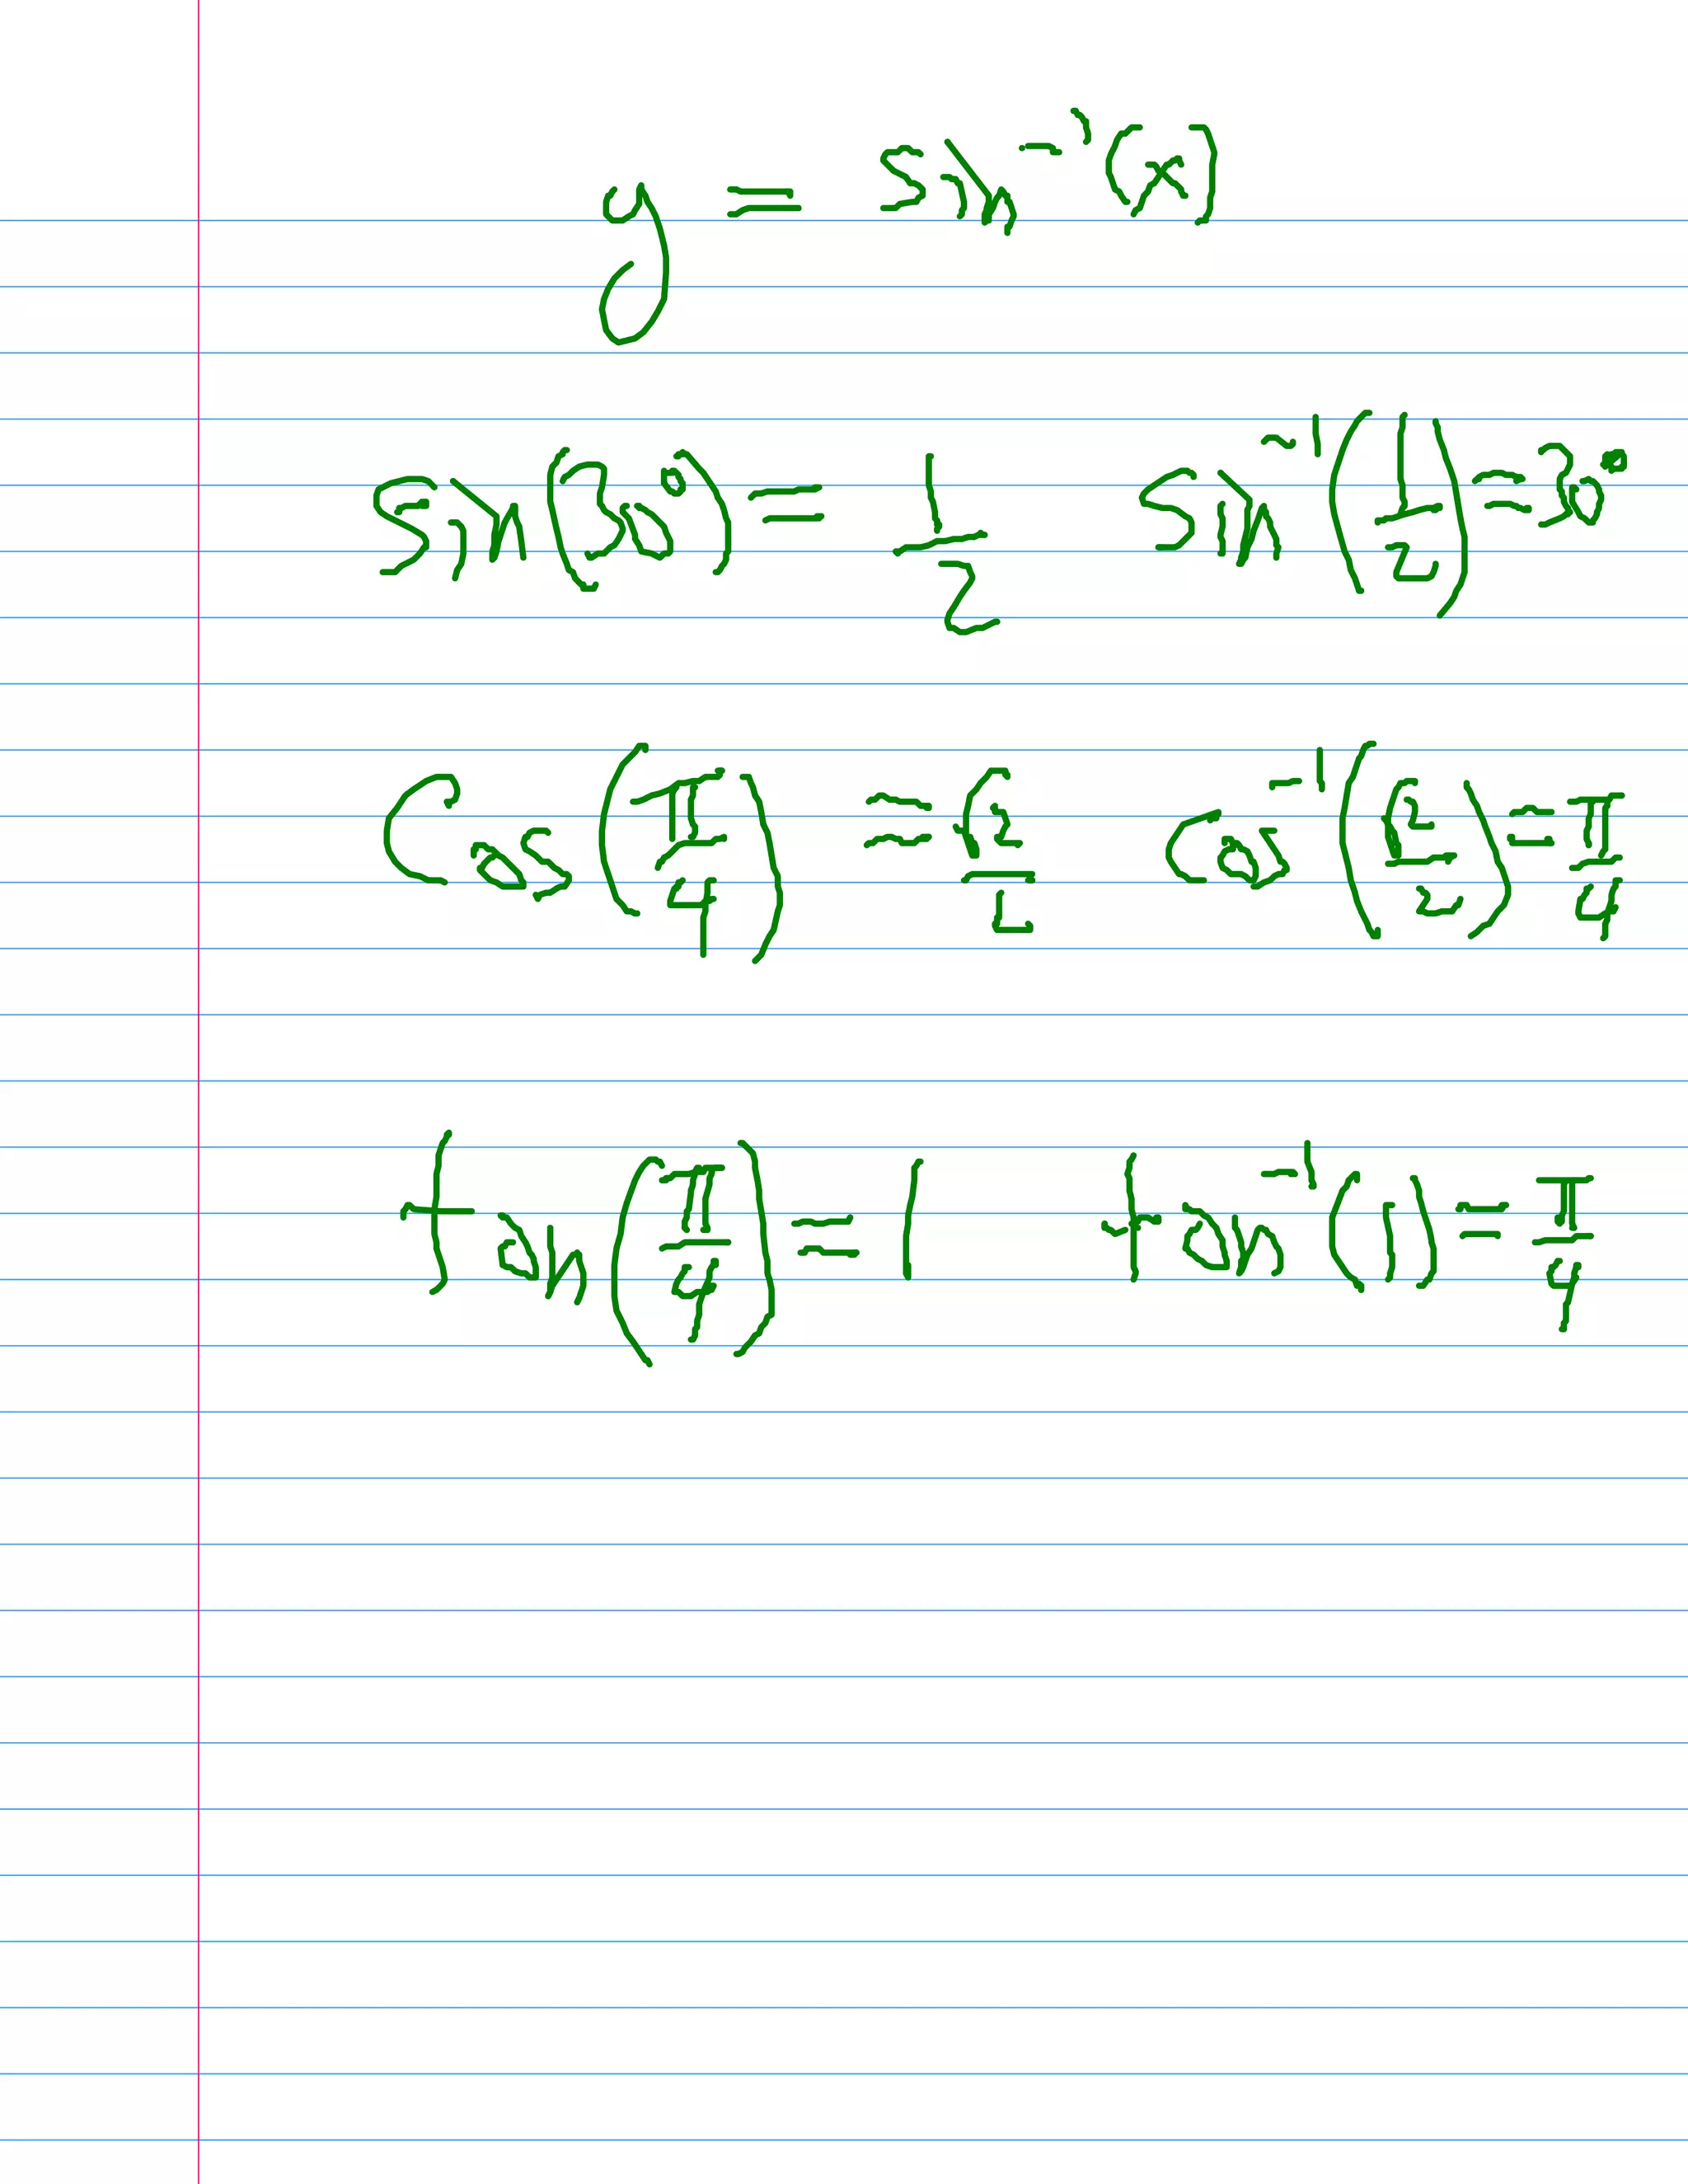 y = sin⁻¹(x)
sin(30°) = 1/2 sin⁻¹(1/2) = 30°
cos(π/4) = √2/2 cos⁻¹(√2/2) = π/4
tan(π/4) = 1 tan⁻¹(1) = π/4